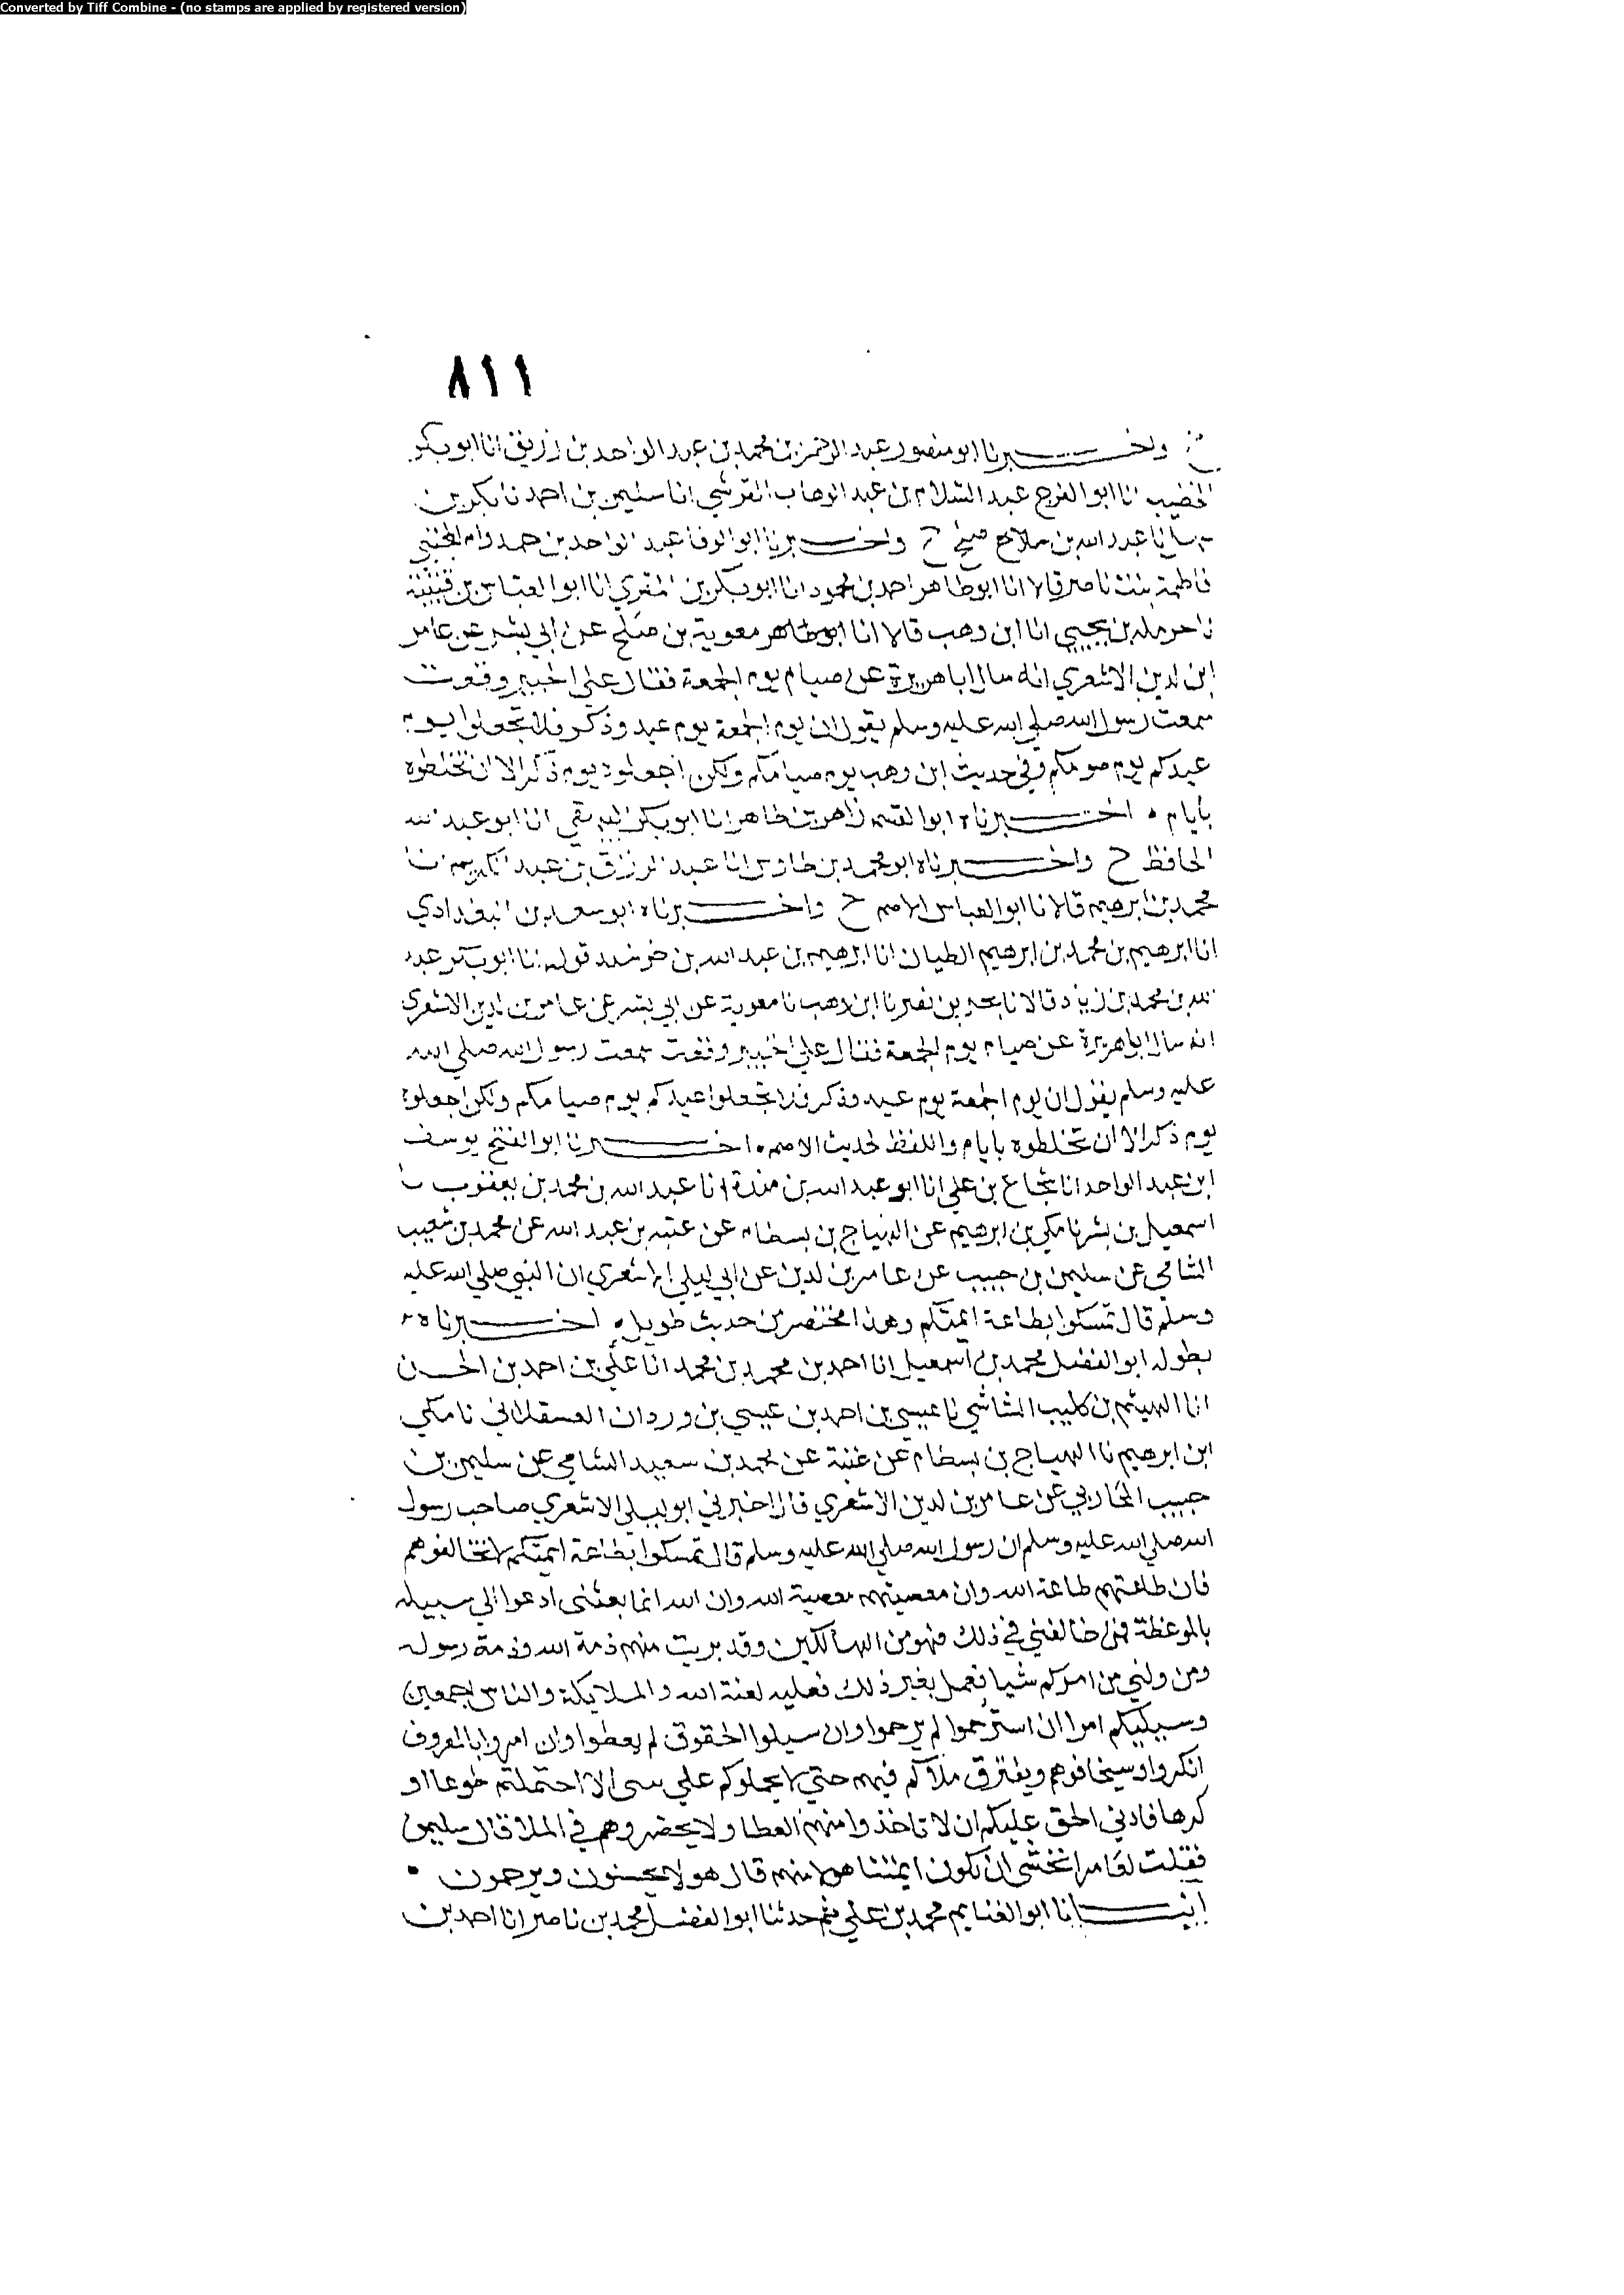 Converted by Tiff Combine - (no stamps are applied by registered version)
٨١١
واخبرنا ابو منصور عبد الرحمن بن محمد بن عبد الواحد بن زريق انا ابو بكر
الخطيب انا ابو الفرج عبد السلام بن عبد الوهاب القرشي انا سليمن بن احمد نا بكر بن
نا عبد الله بن صلح ح واخبرنا ابو الوفا عبد الواحد بن حمد وام المجتبي
فاطمة بنت ناصر قالا انا ابو طاهر احمد بن محمود انا ابو بكر بن المقري انا ابو العباس بن قتيبة
نا حرملة بن يحيي انا ابن وهب قالا انا معوية بن صلح عن ابي بشر عن عامر
ابن لدين الاشعري انه سال ابا هريرة عن صيام يوم الجمعة فقال علي الخبير وقعت
سمعت رسول الله صلي الله عليه وسلم يقول ان يوم الجمعة يوم عيد وذكر فلا تجعلوا يوم
عيدكم يوم صومكم وفي حديث ابن وهب يوم صيامكم ولكن اجعلوه يوم ذكر الا ان تخلطوه
بايام ٠ اخبرناه ابو القسم زاهر بن طاهر انا ابو بكر البيهقي انا ابو عبد الله
الحافظ ح واخبرناه ابو محمد بن طاوس انا عبد الرزاق بن عبد الكريم نا
محمد بن ابرهيم قالا نا ابو العباس الاصم ح واخبرناه ابو سعد بن البغدادي
انا ابرهيم بن محمد بن ابرهيم الطيان انا ابرهيم بن عبد الله بن خرشيد قوله نا ابو بكر عبد
الله بن محمد بن زياد قالا نا بحر بن نصر نا ابن وهب نا معوية عن ابي بشر عن عامر بن لدين الاشعري
انه سال ابا هريرة عن صيام يوم الجمعة فقال علي الخبير وقعت سمعت رسول الله صلي الله
عليه وسلم يقول ان يوم الجمعة يوم عيد وذكر فلا تجعلوا عيدكم يوم صيامكم ولكن اجعلوه
يوم ذكر الا ان تخلطوه بايام واللفظ لحديث الاصم ٠ اخبرنا ابو الفتح يوسف
ابن عبد الواحد انا شجاع بن علي انا ابو عبد الله بن مندة انا عبد الله بن محمد بن يعقوب نا
اسمعيل بن بشر نا مكي بن ابرهيم عن الهياج بن بسطام عن عتبه بن عبد الله عن محمد بن شعيب
الشامي عن سليمن بن حبيب عن عامر بن لدين عن ابي ليلي الاشعري ان النبي صلي الله عليه
وسلم قال تمسكوا بطاعة ايمتكم وهذا مختصر من حديث طويل ٠ اخبرناه
بطوله ابو الفضل محمد بن اسمعيل انا احمد بن محمد بن محمد انا علي بن احمد بن الحسن
انا الهيثم بن كليب الشاشي نا عيسي بن احمد بن عيسي بن وردان العسقلاني نا مكي
ابن ابرهيم نا الهياج بن بسطام عن عنبة عن محمد بن سعيد الشامي عن سليمن بن
حبيب المحاربي عن عامر بن لدين الاشعري قال اخبرني ابو ليلي الاشعري صاحب رسول
الله صلي الله عليه وسلم ان رسول الله صلي الله عليه وسلم قال تمسكوا بطاعة ايمتكم لا تخالفوهم
فان طاعتهم طاعة الله وان معصيتهم معصية الله وان الله انما بعثني ادعوا الي سبيله
بالموعظة فمن خالفني في ذلك فهو من الهالكين وقد بريت منهم ذمة الله وذمة رسوله
ومن ولي من امركم شيا فعمل بغير ذلك فعليه لعنة الله والملايكة والناس اجمعين
وسيليكم امرا ان استرحموا لم يرحموا وان سيلوا الحقوق لم يعطوا وان امروا بالمعروف
انكروا وسيخافوهم ويفترق ملاكم فيهم حتي لا يحملوكم علي شي الا احتملتم طوعا او
كرها فادني الحق عليكم ان لا تاخذوا منهم العطا ولا يحضروهم في الملا قال سليمن
فقلت لعامر اتخشى ان يكون ايمتنا هولا منهم قال هولا يحسنون ويرحمون ٠
انبانا ابو الغنايم محمد بن علي ثم حدثنا ابو الفضل محمد بن ناصر انا احمد بن